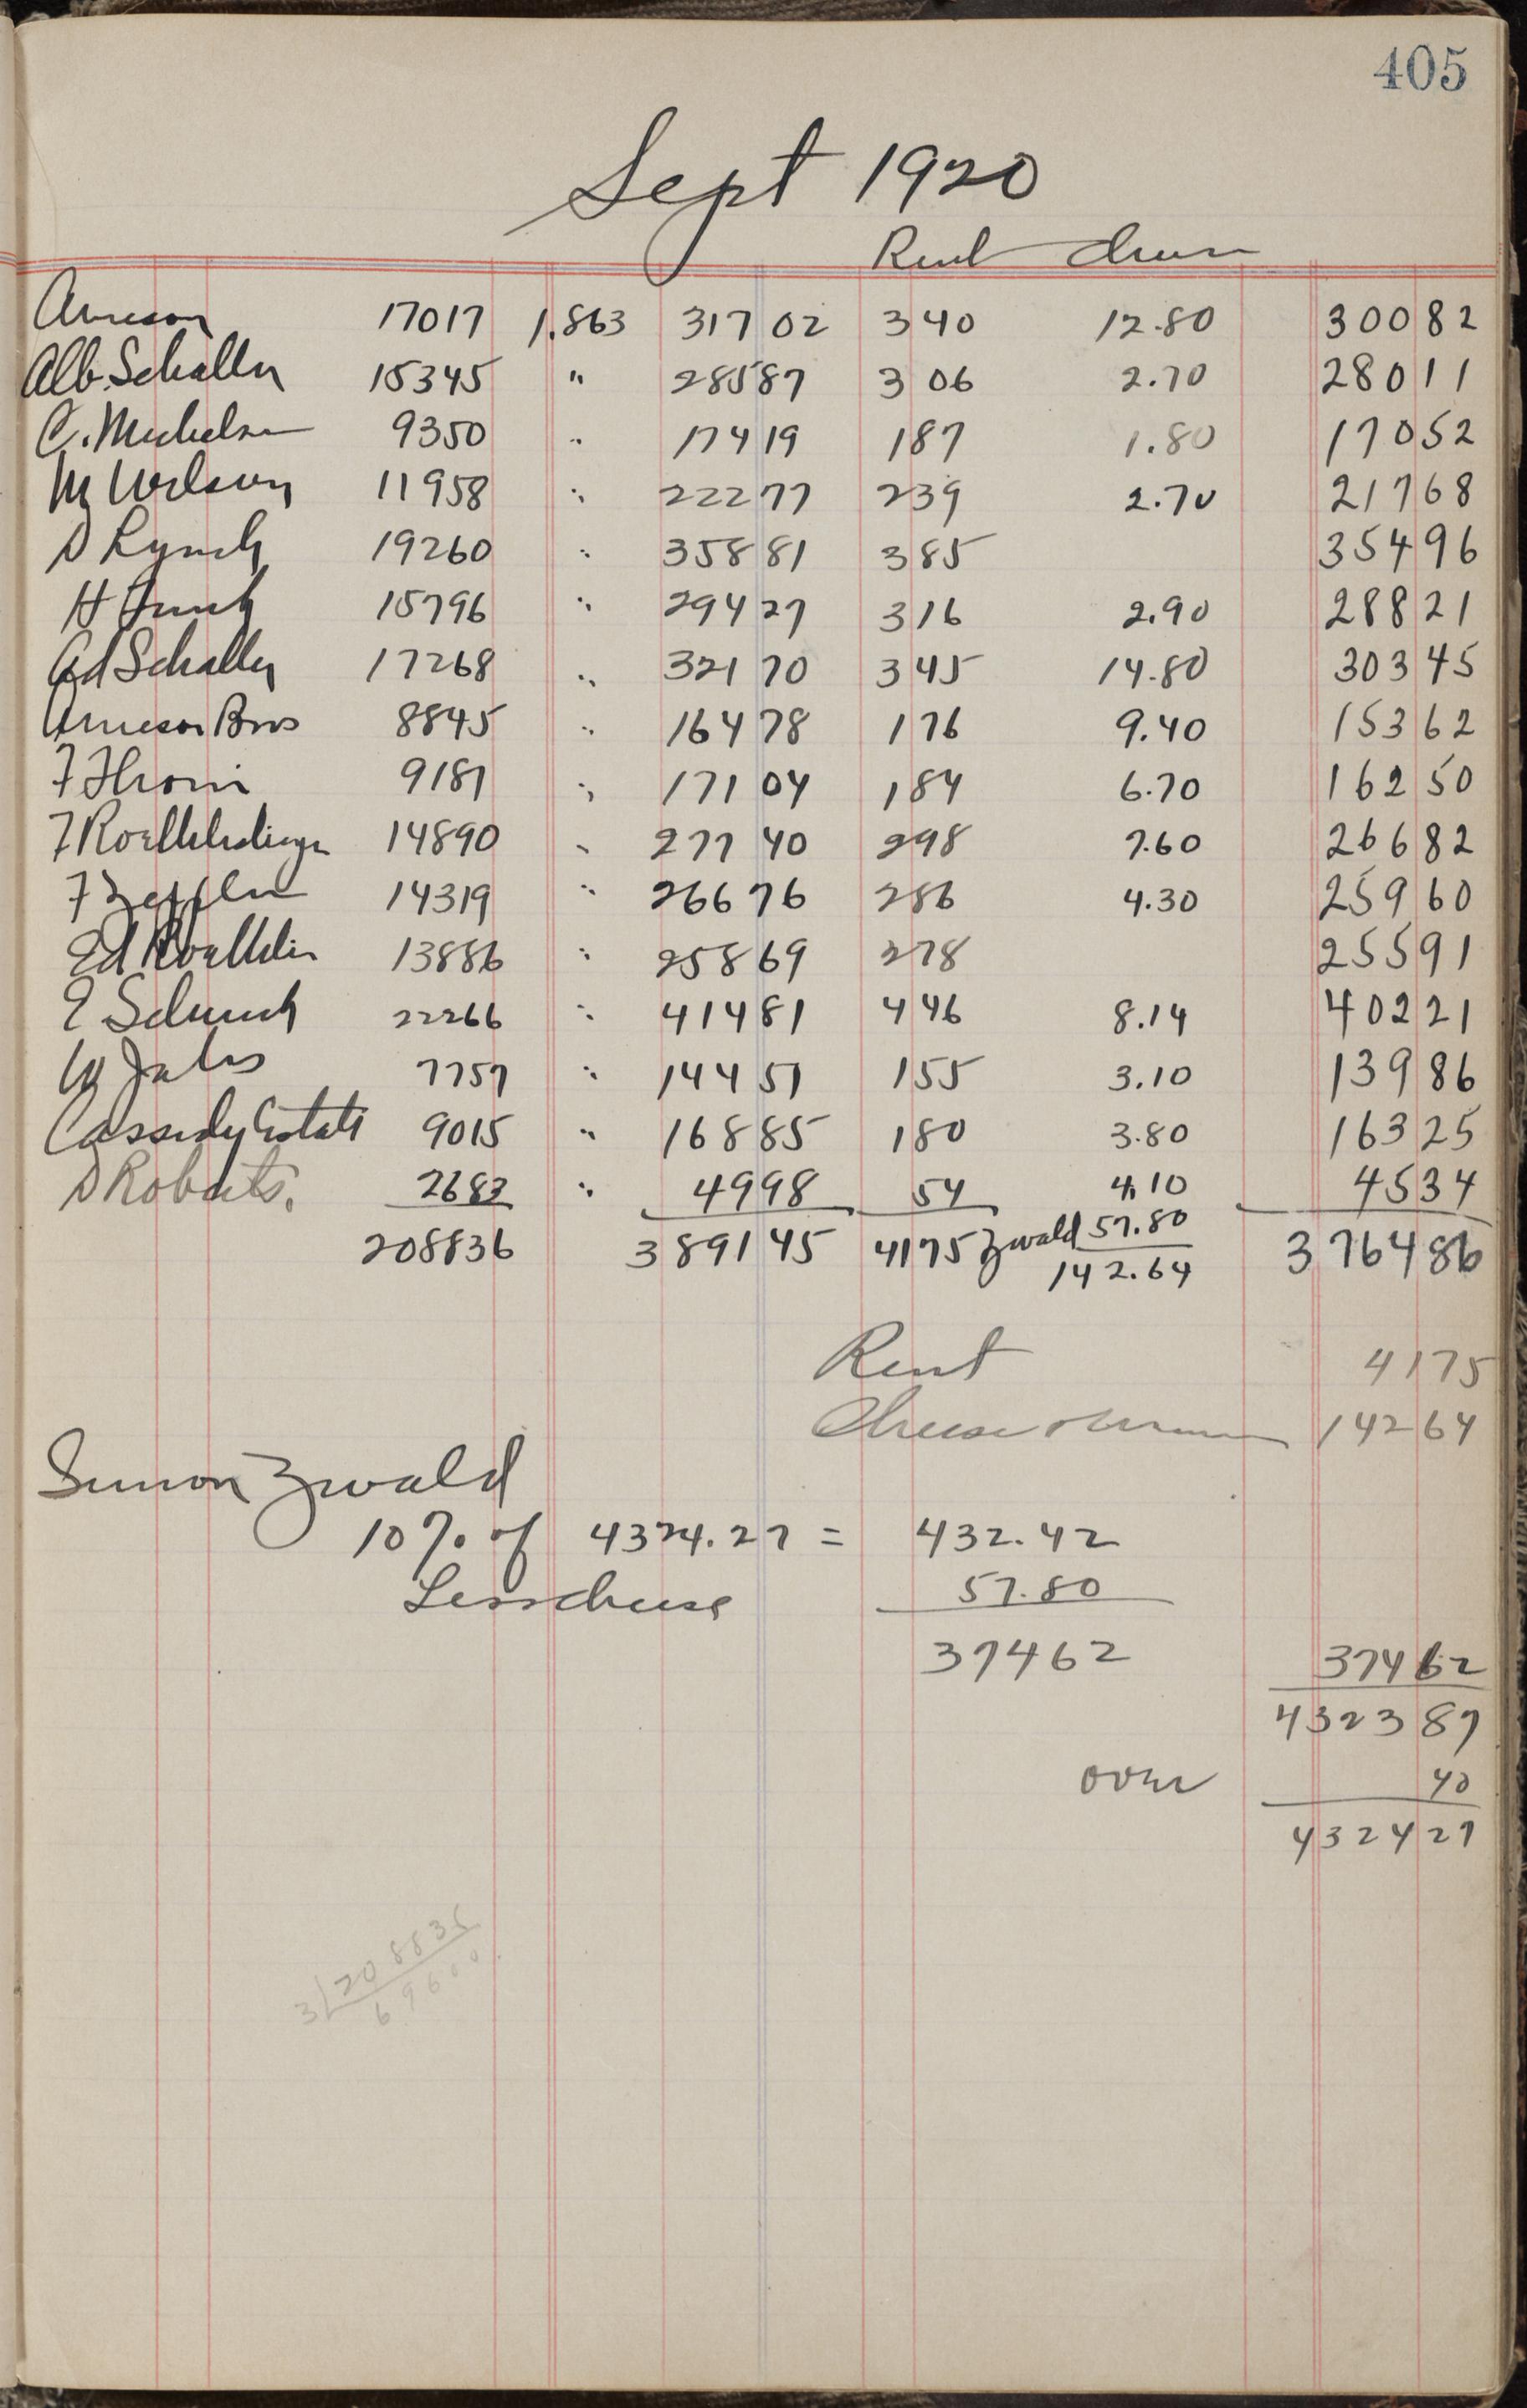 405
Sept 1920
Rent Cheese
Arneson 17017 1.863 317 02 3 40 12.80 300 82
Alb. Schaller 15345 " 285 87 3 06 2.70 280 11
C. Michelson 9350 " 174 19 1 87 1.80 170 52
M Wilson 11958 " 222 77 2 39 2.70 217 68
D Lynch 19260 " 358 81 3 85 354 96
H 15796 " 294 27 3 16 2.90 288 21
Ad Schaller 17268 " 321 70 3 45 14.80 303 45
Arneson Bros 8845 " 164 78 1 76 9.40 153 62
F Thoni 9181 " 171 04 1 84 6.70 162 50
F 14890 " 277 40 2 98 7.60 266 82
F 14319 " 266 76 2 86 4.30 259 60
Ed 13886 " 258 69 2 78 255 91
E 22266 " 414 81 4 46 8.14 402 21
W 7757 " 144 51 1 55 3.10 139 86
Cassidy Estate 9015 " 168 85 1 80 3.80 163 25
D Roberts. 2683 " 49 98 54 4.10 45 34
208836 3891 45 41 75 Zwald 57.80 3764 86
142.64
Rent 41 75
Cheese 142 64
Simon Zwald
10% of 4324.27 = 432.42
Less cheese 57.80
374 62 374 62
4323 87
over 40
4324 27
3 208835
69600